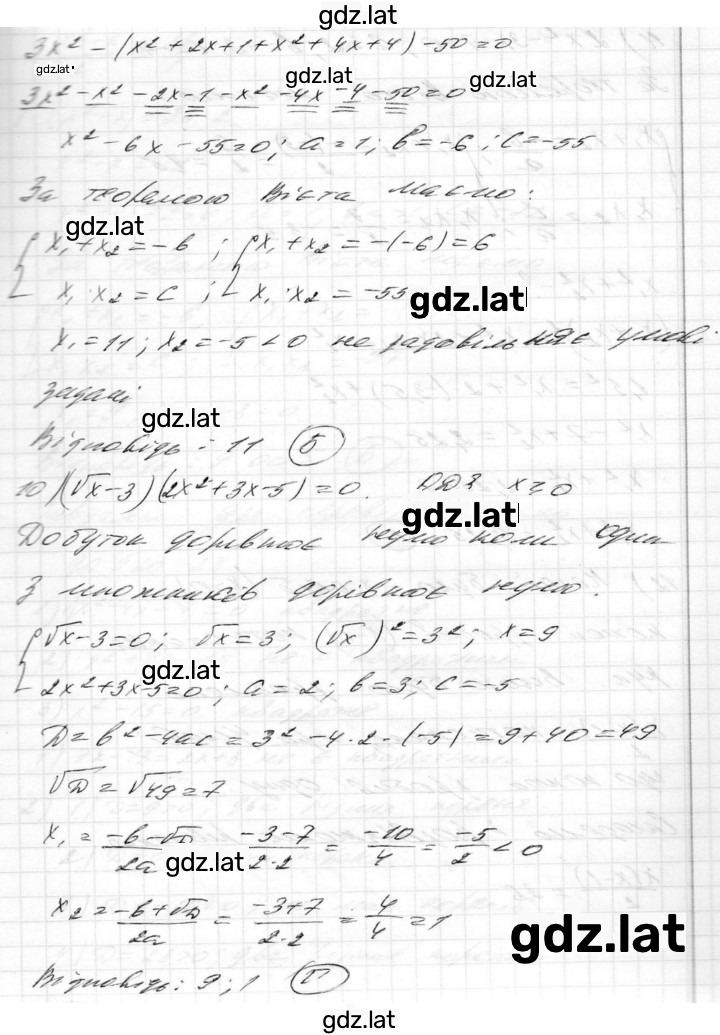 gdz.lat
3x² - (x² + 2x + 1 + x² + 4x + 4) - 50 = 0
gdz.lat
gdz.lat
3x² - x² - 2x - 1 - x² - 4x - 4 - 50 = 0
x² - 6x - 55 = 0; a = 1; b = -6; c = -55
За теоремою Вієта маємо:
gdz.lat
{ x₁ + x₂ = -b ; { x₁ + x₂ = -(-6) = 6
x₁ · x₂ = c ; x₁ · x₂ = -55
gdz.lat
x₁ = 11; x₂ = -5 < 0 не задовільняє умові
задачі
gdz.lat
Відповідь: 11 (Б)
10) (√x - 3)(2x² + 3x - 5) = 0. ОДЗ x ≥ 0
gdz.lat
Добуток дорівнює нулю коли один
з множників дорівнює нулю.
{ √x - 3 = 0; √x = 3; (√x)² = 3²; x = 9
gdz.lat
2x² + 3x - 5 = 0; a = 2; b = 3; c = -5
D = b² - 4ac = 3² - 4 · 2 · (-5) = 9 + 40 = 49
√D = √49 = 7
x₁ = (-b - √D)/2a = (-3 - 7)/(2 · 2) = -10/4 = -5/2 < 0
gdz.lat
x₂ = (-b + √D)/2a = (-3 + 7)/(2 · 2) = 4/4 = 1
gdz.lat
Відповідь: 9; 1
gdz.lat